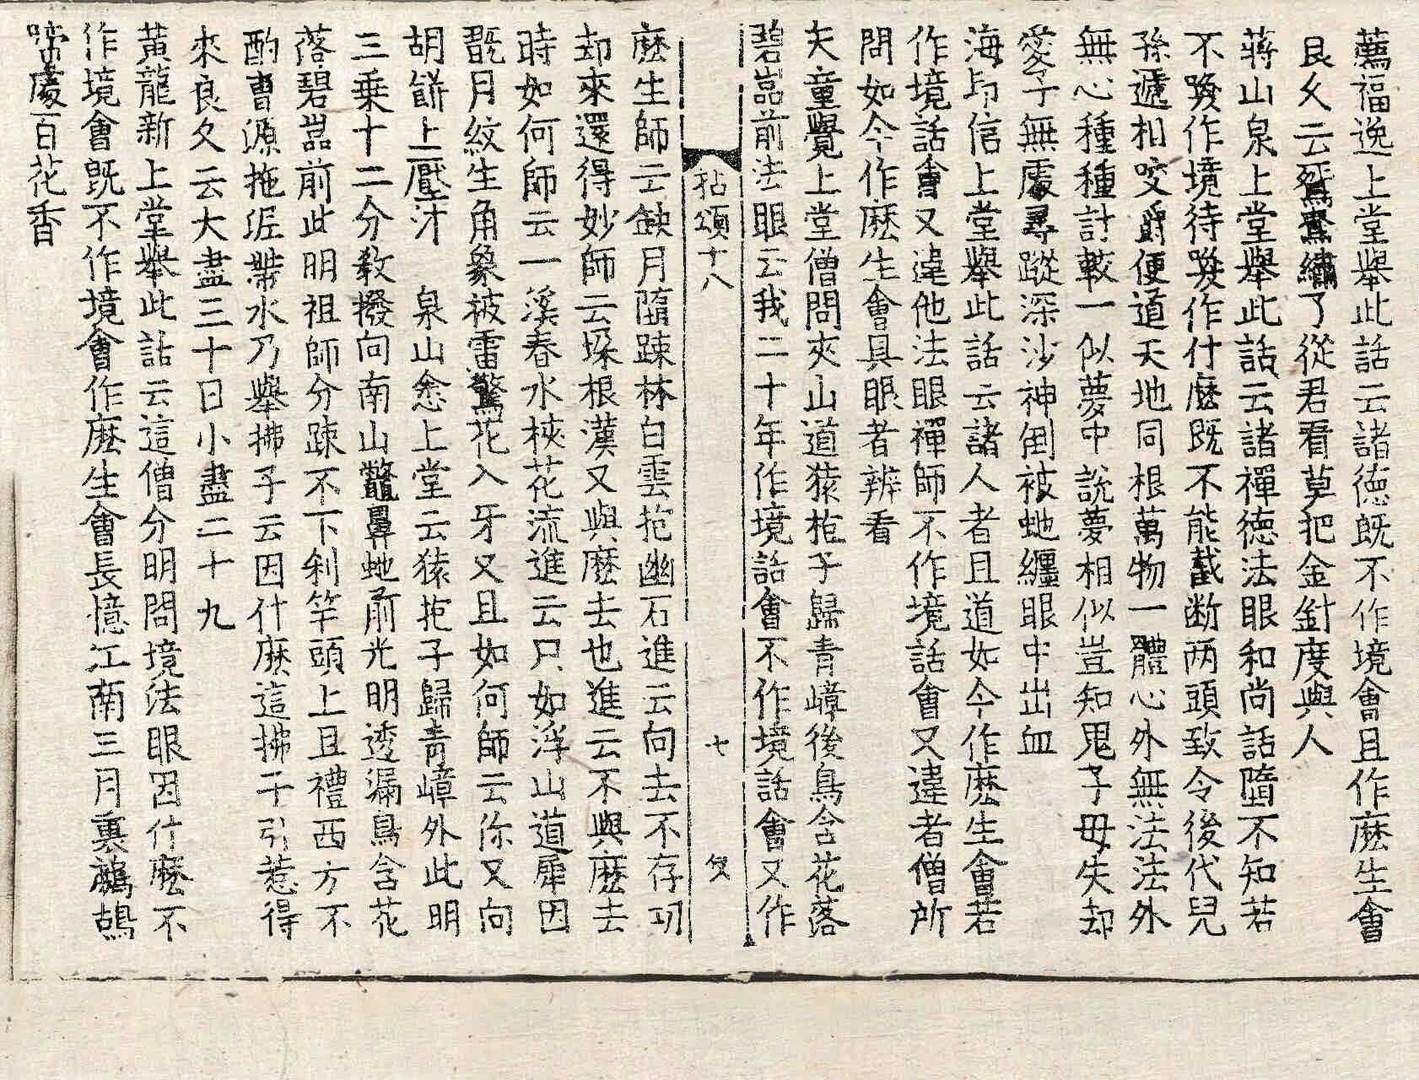 薦福逸上堂舉此話云諸德旣不作境會且作麽生會
良久云鴛鴦繡了從君看莫把金針度與人
蔣山泉上堂舉此話云諸禪德法眼和尚話墮不知若
不喚作境待喚作什麽旣不能截断两頭致令後代兒
孫遞相咬嚼便道天地同根萬物一體心外無法法外
無心種種計較一似夢中說夢相似豈知鬼子母失却
愛子無處尋蹤深沙神倒被虵纏眼中出血
海印信上堂舉此話云諸人者且道如今作麽生會若
作境話會又違他法眼禪師不作境話會又違者僧所
問如今作麽生會具眼者辨看
天童覺上堂僧問夾山道猿抱子歸青嶂後鳥含花落
碧嵓前法眼云我二十年作境話會不作境話會又作
拈頌十八 七
麽生師云蝕月隨踈林白雲抱幽石進云向去不存功
却來還得妙師云垛根漢又與麽去也進云不與麽去
時如何師云一溪春水挾花流進云只如浮山道犀因
翫月紋生角象被雷驚花入牙又且如何師云你又向
胡餠上壓汁 泉山悆上堂云猿抱子歸青嶂外此明
三乗十二分敎撥向南山鼈鼻虵前光明透漏鳥含花
落碧嵓前此明祖師分踈不下刹竿頭上且禮西方不
酌曹源拖泥帶水乃舉拂子云因什麽這拂子引惹得
來良久云大盡三十日小盡二十九
黃龍新上堂舉此話云這僧分明問境法眼因什麽不
作境會旣不作境會作麽生會長憶江南三月裏鷓鴣
啼處百花香